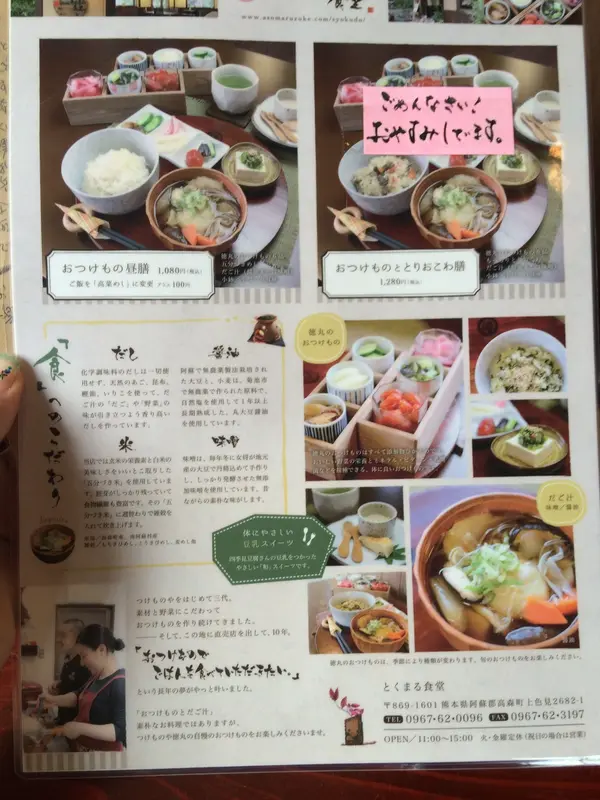 食堂
www.asomaruzuke.com/syokudo/
ごめんなさい！
おやすみしてます。
おつけもの昼膳 1,080円(税込)
ご飯を「高菜めし」に変更 プラス100円
おつけものととりおこわ膳
1,280円(税込)
「食」へのこだわり
だし
化学調味料のだしは一切使用せず、天然のあご、昆布、鰹節、いりこを使って、だご汁の「だご」や「野菜」の味が引き立つよう香り高いだしを作っています。
醤油
阿蘇で無農薬製法栽培された大豆と、小麦は、菊池産で無農薬で作られた原料で、自然塩を使用して1年以上長期熟成した、丸大豆醤油を使用しています。
米
味噌
味噌は、毎年冬に女将が地元産の大豆で丹精込めて手作りし、しっかり発酵させた無添加味噌を使用しています。昔ながらの素朴な味がします。
徳丸の
おつけもの
だご汁
味噌／醤油
体にやさしい
豆乳スイーツ
四季見豆腐さんの豆乳をつかった
やさしい「和」スイーツです。
つけものやをはじめて三代。
素材と野菜にこだわって
おつけものを作り続けてきました。
――そして、この地に直売店を出して、10年。
「おつけもので
ごはんを食べていただきたい。」
という長年の夢がやっと叶いました。
「おつけものとだご汁」
素朴なお料理ではありますが、
つけものや徳丸の自慢のおつけものをお楽しみくださいませ。
醤油
徳丸のおつけものは、季節により種類が変わります。旬のおつけものをお楽しみください。
とくまる食堂
〒869-1601 熊本県阿蘇郡高森町上色見2682-1
TEL 0967-62-0096 FAX 0967-62-3197
OPEN／11:00〜15:00 火・金曜定休(祝日の場合は営業)